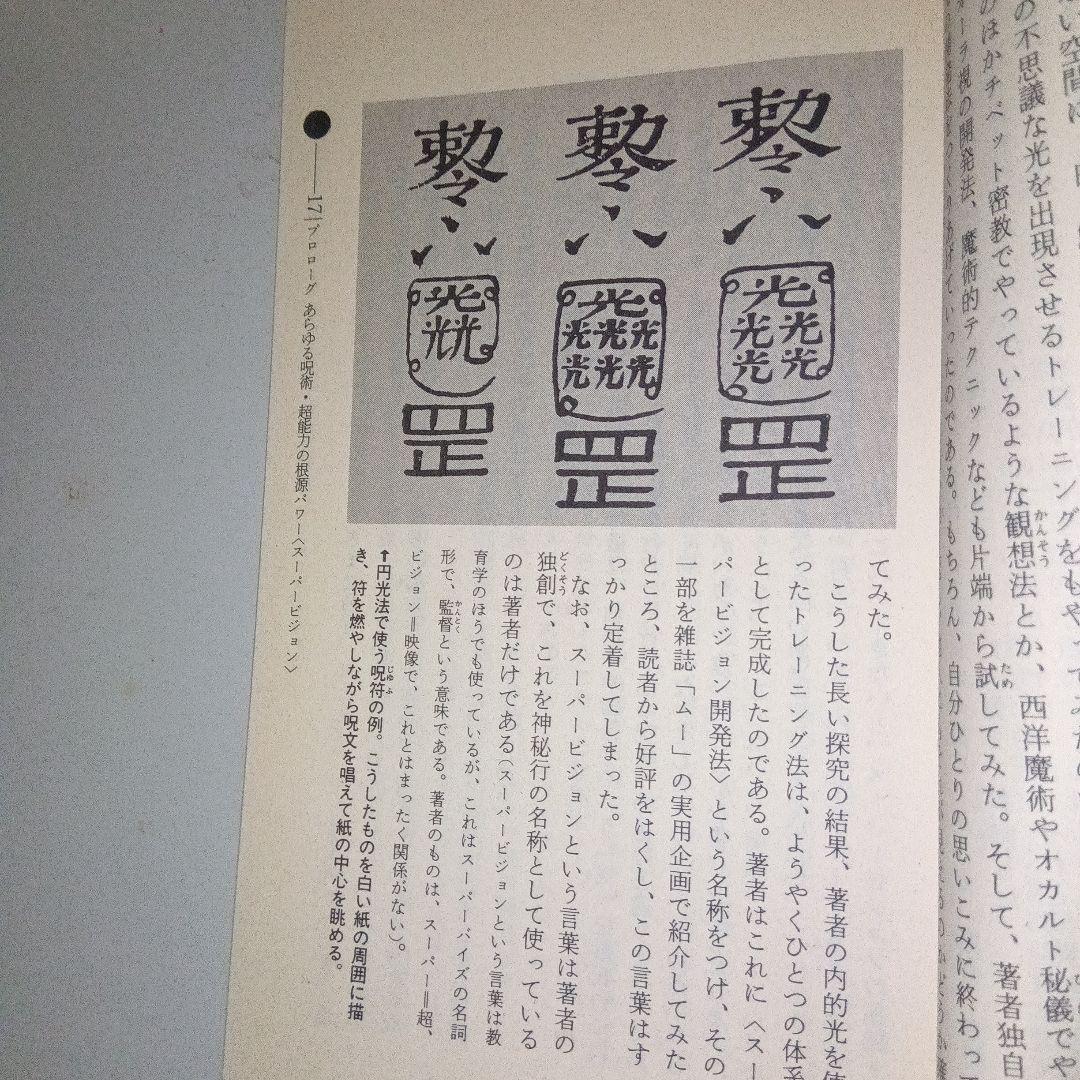 の不思議な光を出現させるトレーニングをもやってみた
のほかチベット密教でやっているような観想法とか、西洋魔術やオカルト秘儀でや
かんそう
オーラ視の開発法、魔術的テクニックなども片端から試してみた。そして、著者独自
ため
いったのである。もちろん、自分ひとりの思いこみに終わっ
てみた。
こうした長い探究の結果、著者の内的光を使
ったトレーニング法は、ようやくひとつの体系
として完成したのである。著者はこれに〈スー
パービジョン開発法〉という名称をつけ、その
一部を雑誌「ムー」の実用企画で紹介してみた
ところ、読者から好評をはくし、この言葉はす
っかり定着してしまった。
なお、スーパービジョンという言葉は著者の
独創で、これを神秘行の名称として使っている
どくそう
のは著者だけである(スーパービジョンという言葉は教
育学のほうでも使っているが、これはスーパーバイズの名詞
形で、監督という意味である。著者のものは、スーパー＝超、
かんとく
ビジョン＝映像で、これとはまったく関係がない)。
↑円光法で使う呪符の例。こうしたものを白い紙の周囲に描
じゅふ
き、符を燃やしながら呪文を唱えて紙の中心を眺める。
光光光光光
罡
光光光光光光光
罡
光光光
罡
17 プロローグ あらゆる呪術・超能力の根源パワー〈スーパービジョン〉